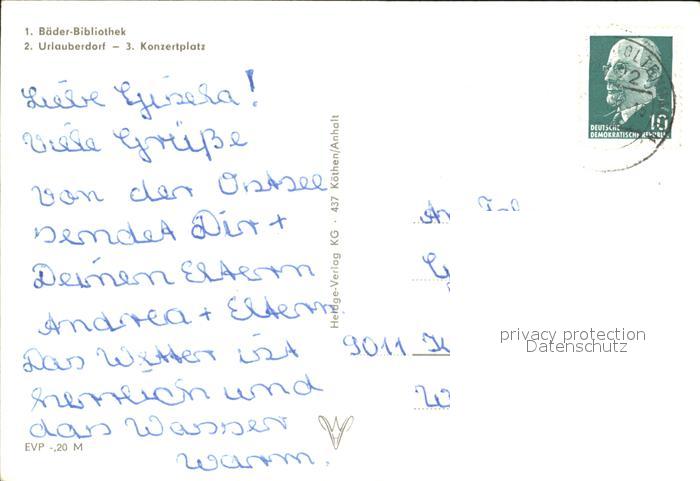 1. Bäder-Bibliothek
2. Urlauberdorf – 3. Konzertplatz
Liebe Gisela!
Viele Grüße
von der Ostsee
sendet Dir +
Deinen Eltern
Andrea + Eltern.
Das Wetter ist
herrlich und
das Wasser
warm.
EVP -,20 M
Heldge-Verlag KG · 437 Köthen/Anhalt
DEUTSCHE
DEMOKRATISCHE REPUBLIK
10
An
9011
privacy protection
Datenschutz